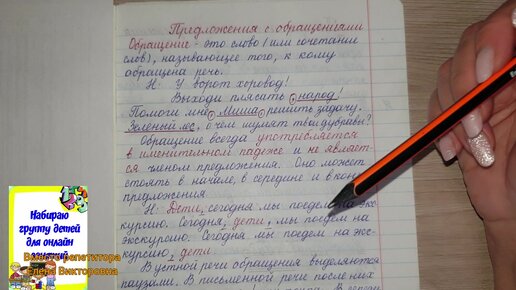 Предложения с обращениями
Обращение - это слово (или сочетание
слов), называющее того, к кому
обращена речь.
Н: У ворот хоровод!
Выходи плясать, народ!
Помоги мне, Миша, решить задачу.
Зеленый лес, о чем шумят твои дубравы?
Обращение всегда употребляется
в именительном падеже и не являет-
ся членом предложения. Оно может
стоять в начале, в середине и в конце
предложения.
Н: Дети, сегодня мы поедем на экс-
курсию. Сегодня, дети, мы поедем на
экскурсию. Сегодня мы поедем на экс-
курсию, дети.
В устной речи обращения выделяются
паузами. В письменной речи после них
Набираю
группу детей
для онлайн
занятий
Вместо репетитора
Елена Викторовна